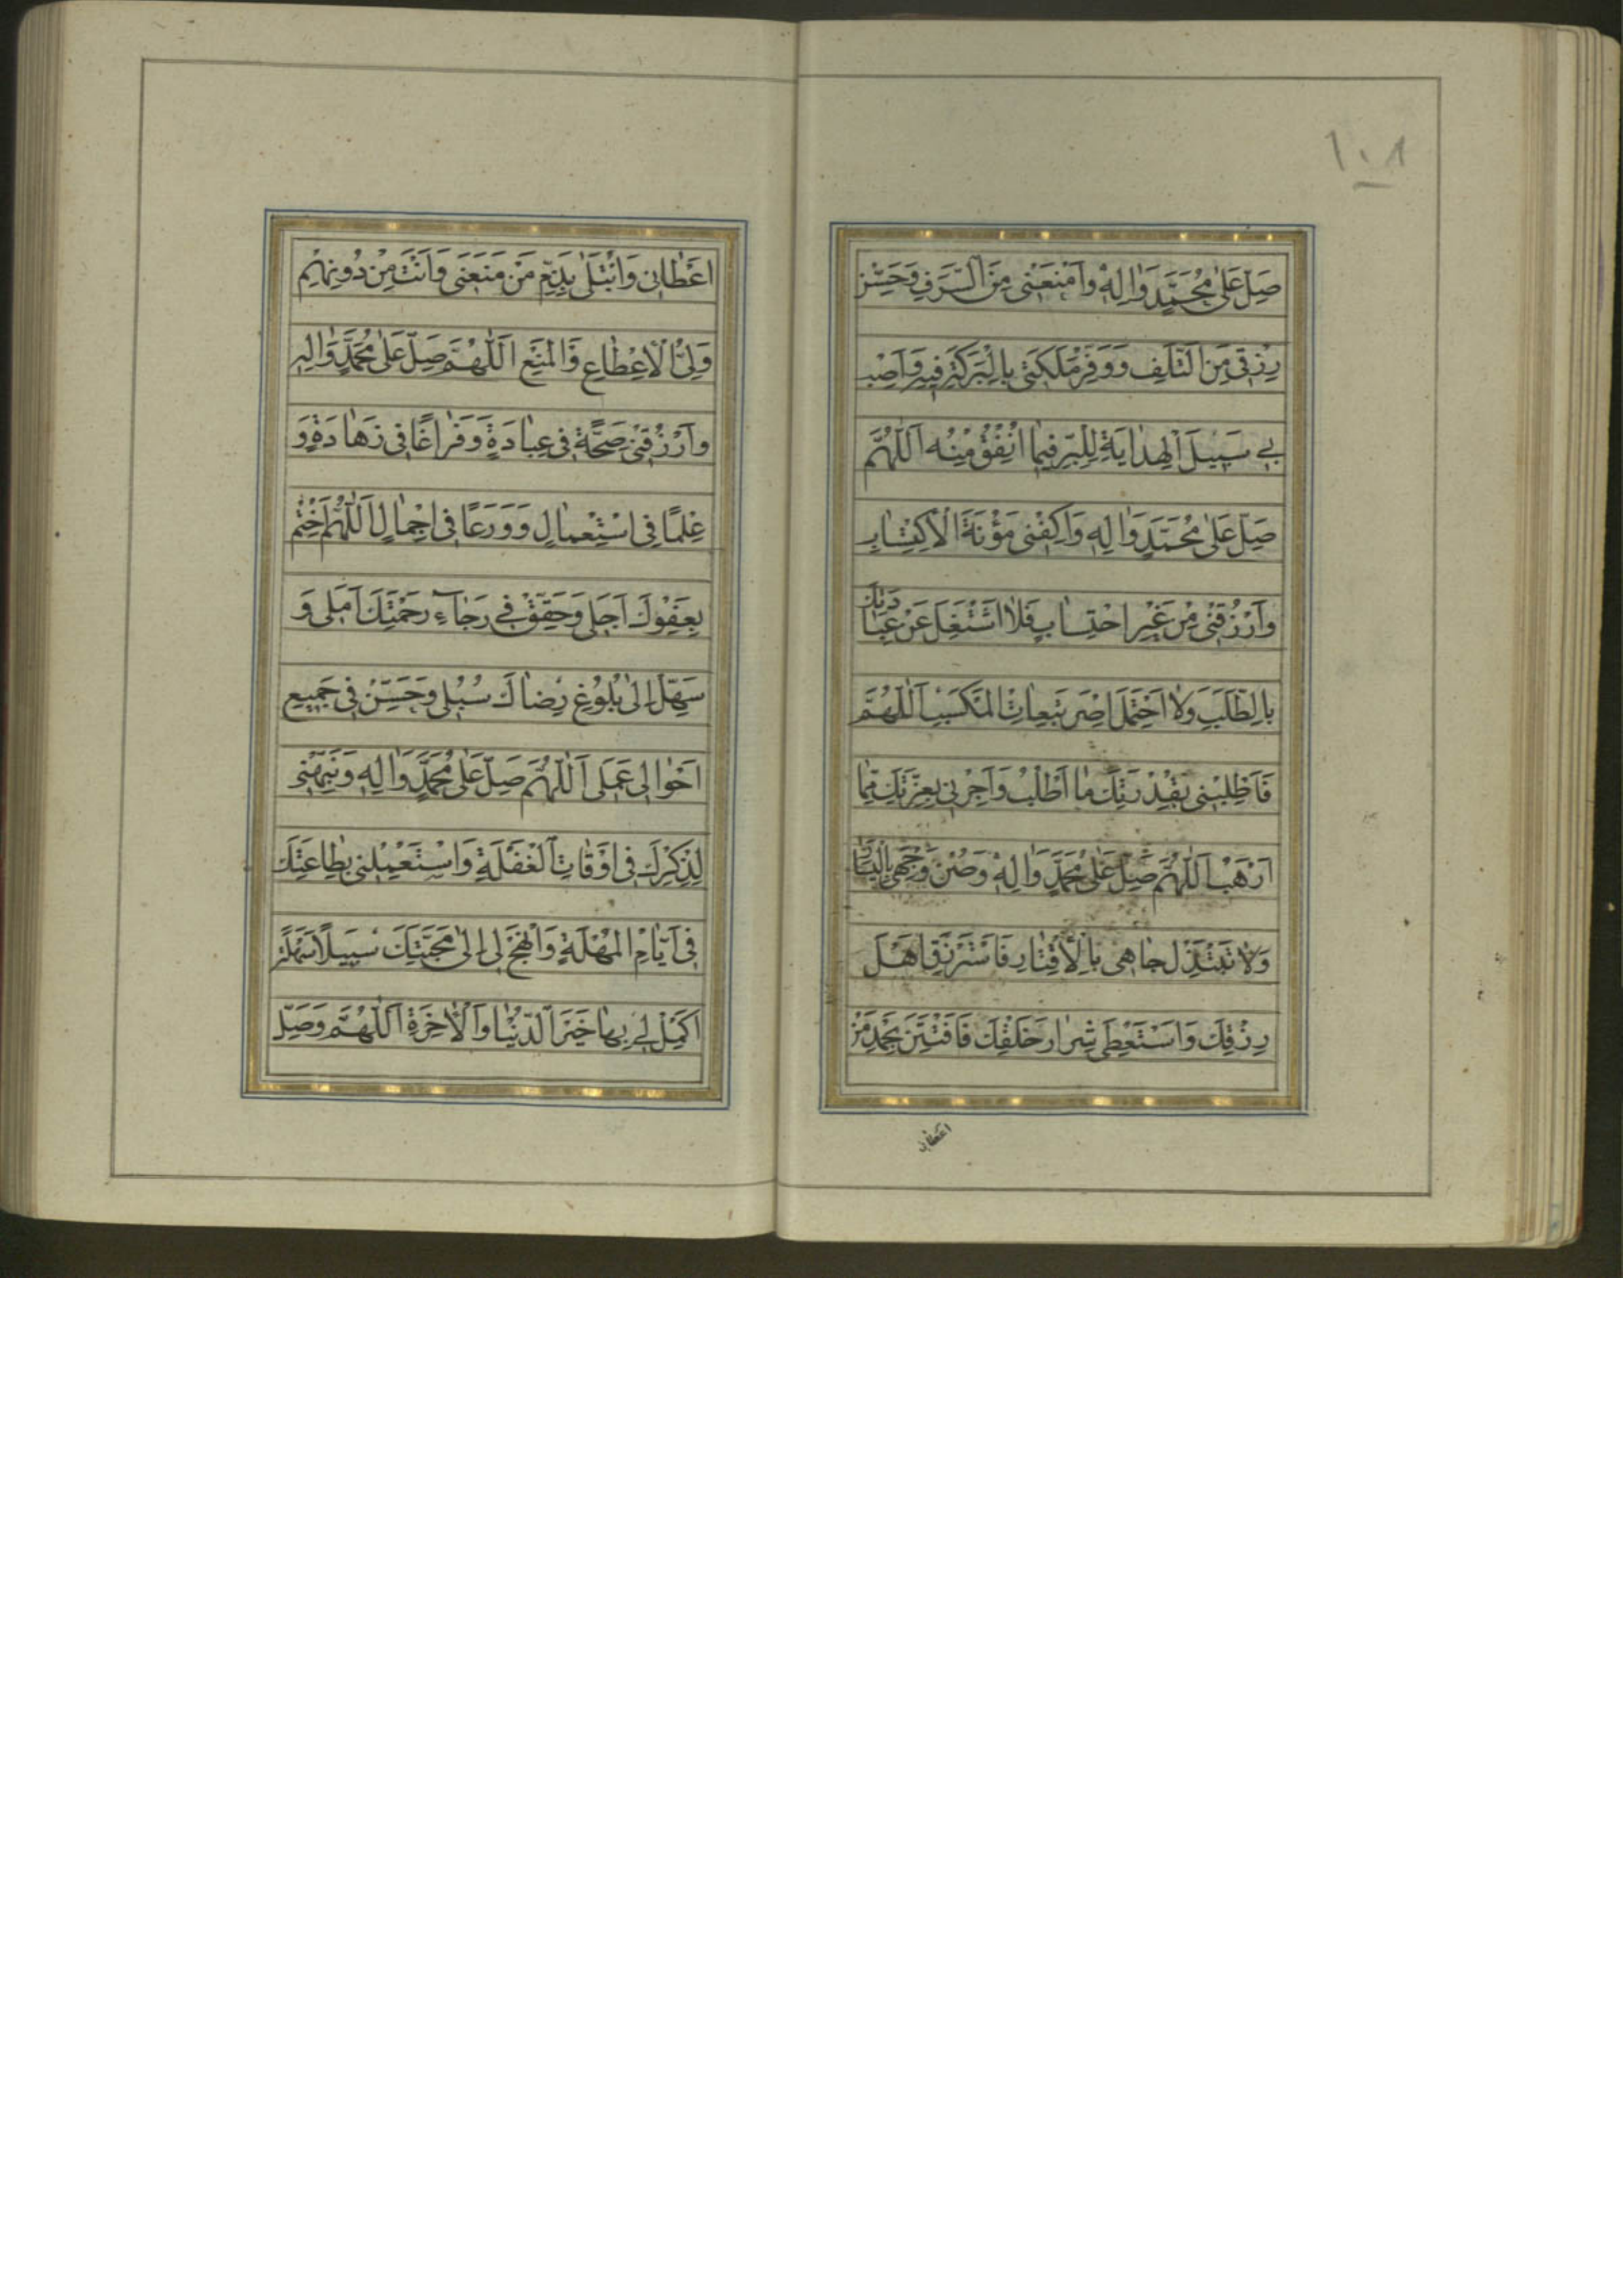 ١٠٨
صَلِّ عَلٰى مُحَمَّدٍ وَاٰلِهٖ وَامْنَعْنِى مِنَ السَّرَفِ وَحَصِّنْ
رِزْقِى مِنَ التَّلَفِ وَوَفِّرْ مَلَكَتِى بِالْبَرَكَةِ فِيهِ وَاَصِبْ
بِى سَبِيلَ الْهِدَايَةِ لِلْبِرِّ فِيمَا اُنْفِقُ مِنْهُ اَللّٰهُمَّ
صَلِّ عَلٰى مُحَمَّدٍ وَاٰلِهٖ وَاكْفِنِى مَؤُنَةَ الْاِكْتِسَابِ
وَارْزُقْنِى مِنْ غَيْرِ احْتِسَابٍ فَلَا اَشْتَغِلَ عَنْ عِبَادَتِكَ
بِالطَّلَبِ وَلَا اَحْتَمِلَ اِصْرَ تَبِعَاتِ الْمَكْسَبِ اَللّٰهُمَّ
فَاَطْلِبْنِى بِقُدْرَتِكَ مَا اَطْلُبُ وَاَجِرْنِى بِعِزَّتِكَ مِمَّا
اَرْهَبُ اَللّٰهُمَّ صَلِّ عَلٰى مُحَمَّدٍ وَاٰلِهٖ وَصُنْ وَجْهِى بِالْيَسَارِ
وَلَا تَبْتَذِلْ جَاهِى بِالْاِقْتَارِ فَاَسْتَرْزِقَ اَهْلَ
رِزْقِكَ وَاَسْتَعْطِىَ شِرَارَ خَلْقِكَ فَاَفْتَتِنَ بِحَمْدِ مَنْ
اعطانى
اَعْطَانِى وَاُبْتَلٰى بِذَمِّ مَنْ مَنَعَنِى وَاَنْتَ مِنْ دُونِهِمْ
وَلِىُّ الْاِعْطَاءِ وَالْمَنْعِ اَللّٰهُمَّ صَلِّ عَلٰى مُحَمَّدٍ وَاٰلِهِ
وَارْزُقْنِى صِحَّةً فِى عِبَادَةٍ وَفَرَاغًا فِى زَهَادَةٍ وَ
عِلْمًا فِى اسْتِعْمَالٍ وَوَرَعًا فِى اِجْمَالٍ اَللّٰهُمَّ اخْتِمْ
بِعَفْوِكَ اَجَلِى وَحَقِّقْ فِى رَجَاءِ رَحْمَتِكَ اَمَلِى وَ
سَهِّلْ اِلٰى بُلُوغِ رِضَاكَ سُبُلِى وَحَسِّنْ فِى جَمِيعِ
اَحْوَالِى عَمَلِى اَللّٰهُمَّ صَلِّ عَلٰى مُحَمَّدٍ وَاٰلِهِ وَنَبِّهْنِى
لِذِكْرِكَ فِى اَوْقَاتِ الْغَفْلَةِ وَاسْتَعْمِلْنِى بِطَاعَتِكَ
فِى اَيَّامِ الْمُهْلَةِ وَانْهَجْ لِى اِلٰى مَحَبَّتِكَ سَبِيلًا سَهْلَةً
اَكْمِلْ لِى بِهَا خَيْرَ الدُّنْيَا وَالْاٰخِرَةِ اَللّٰهُمَّ وَصَلِّ